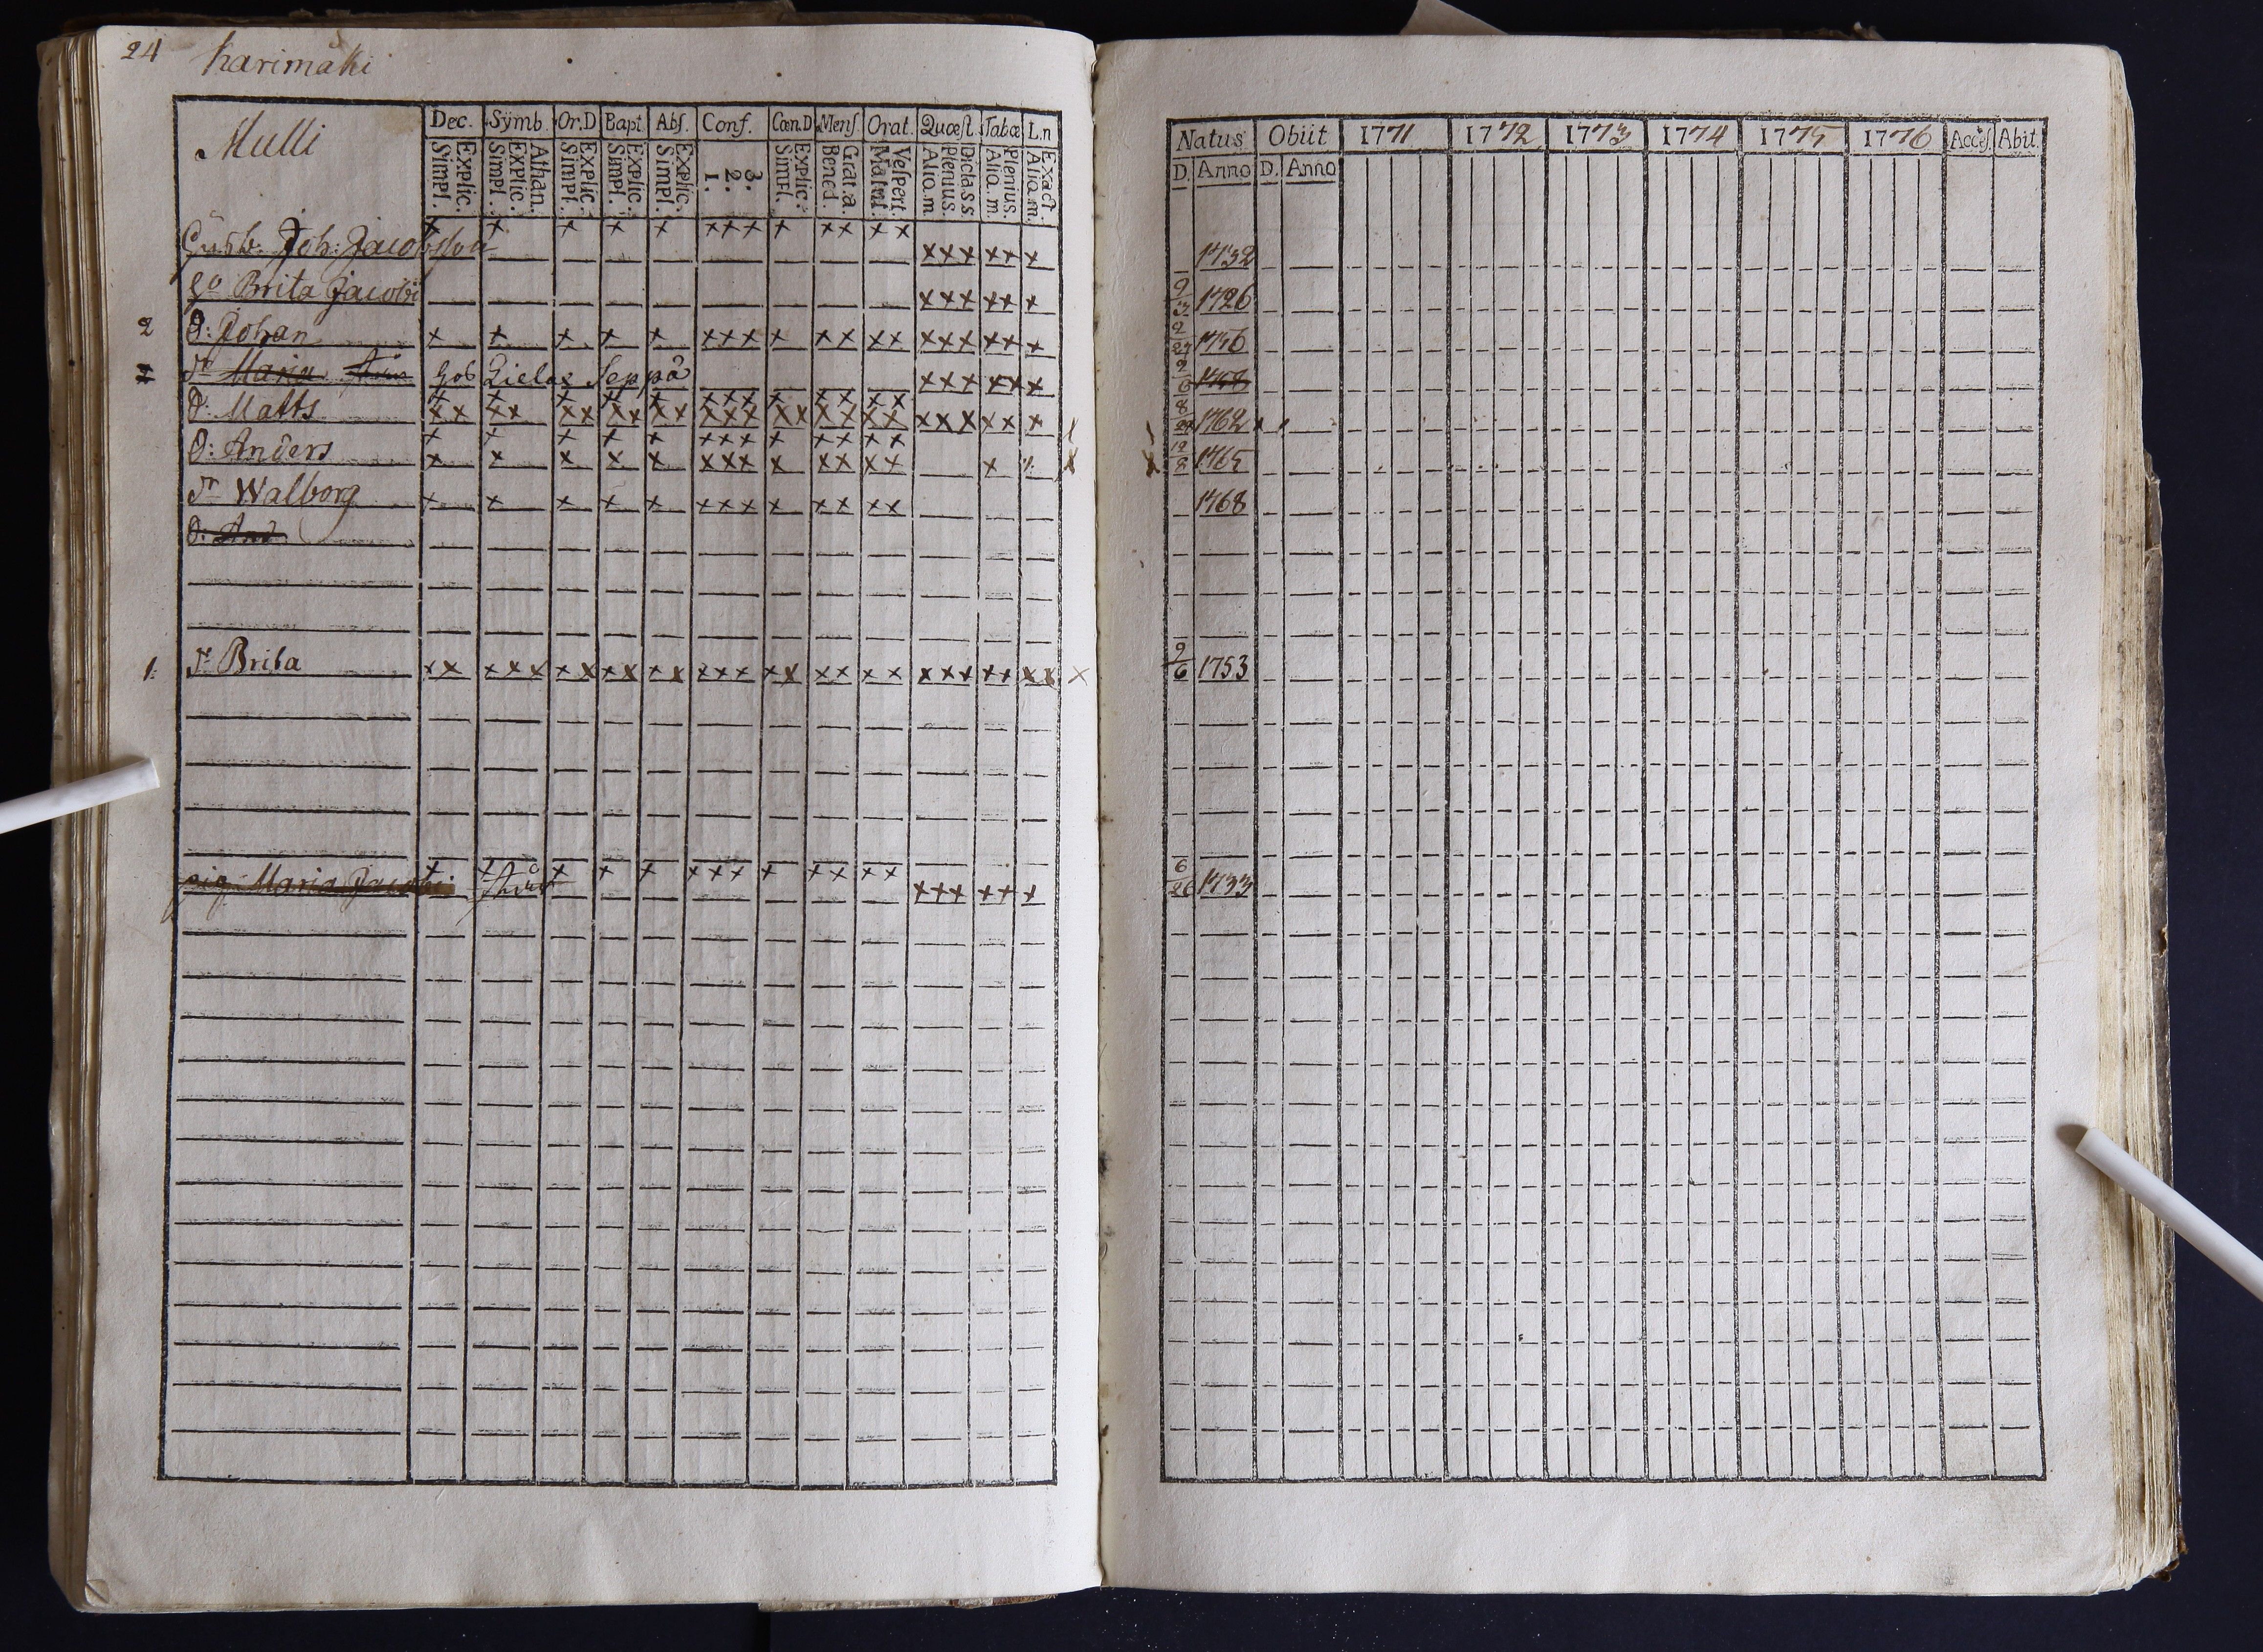 24 harimäki
Mulli
Dec. Sÿmb. Or.D Bapt. Abſ. Conf. Cœn.D Menſ. Orat. Quæſt. Tabæ L.n
Explic. Simpl. Athan. Explic. Simpl. Explic. Simpl. Explic. Simpl. Explic. Simpl. 3. 2. 1. Explic. Simpl. Grat.a. Bened. Veſpert. Matut. Dicla.s.s. Plenius. Aliq.m. Plenius. Aliq.m. Exact. Aliq.m.
Joh: Jacobsson x x x x x xxx x xx xx xxx xx x
Brita Jacobi xxx xx x
2 S: Johan x x x x x xxx x xx xx xxx xx x
Maria Gob Lielax Seppä xxx xxx
S: Matts xx xx xx xx xx xxx xx xx xx xxx xx x
S: Anders x x x x x xxx x xx xx x
Walborg x x x x x xxx x xx xx
S: And
1. Brita xx xxx xx xx xx xxx xx xx xx xxx xx xx x
pig. Maria Jacobi x x x x x xxx x xx xx xxx xx x
Natus Obiit 1771 1772 1773 1774 1775 1776 Acceſ. Abit.
D. Anno D. Anno
1732
9/3 1726
2/27 1756
2/6 1758
8/29 1762
12/8 1765
1768
9/6 1753
6/26 1733